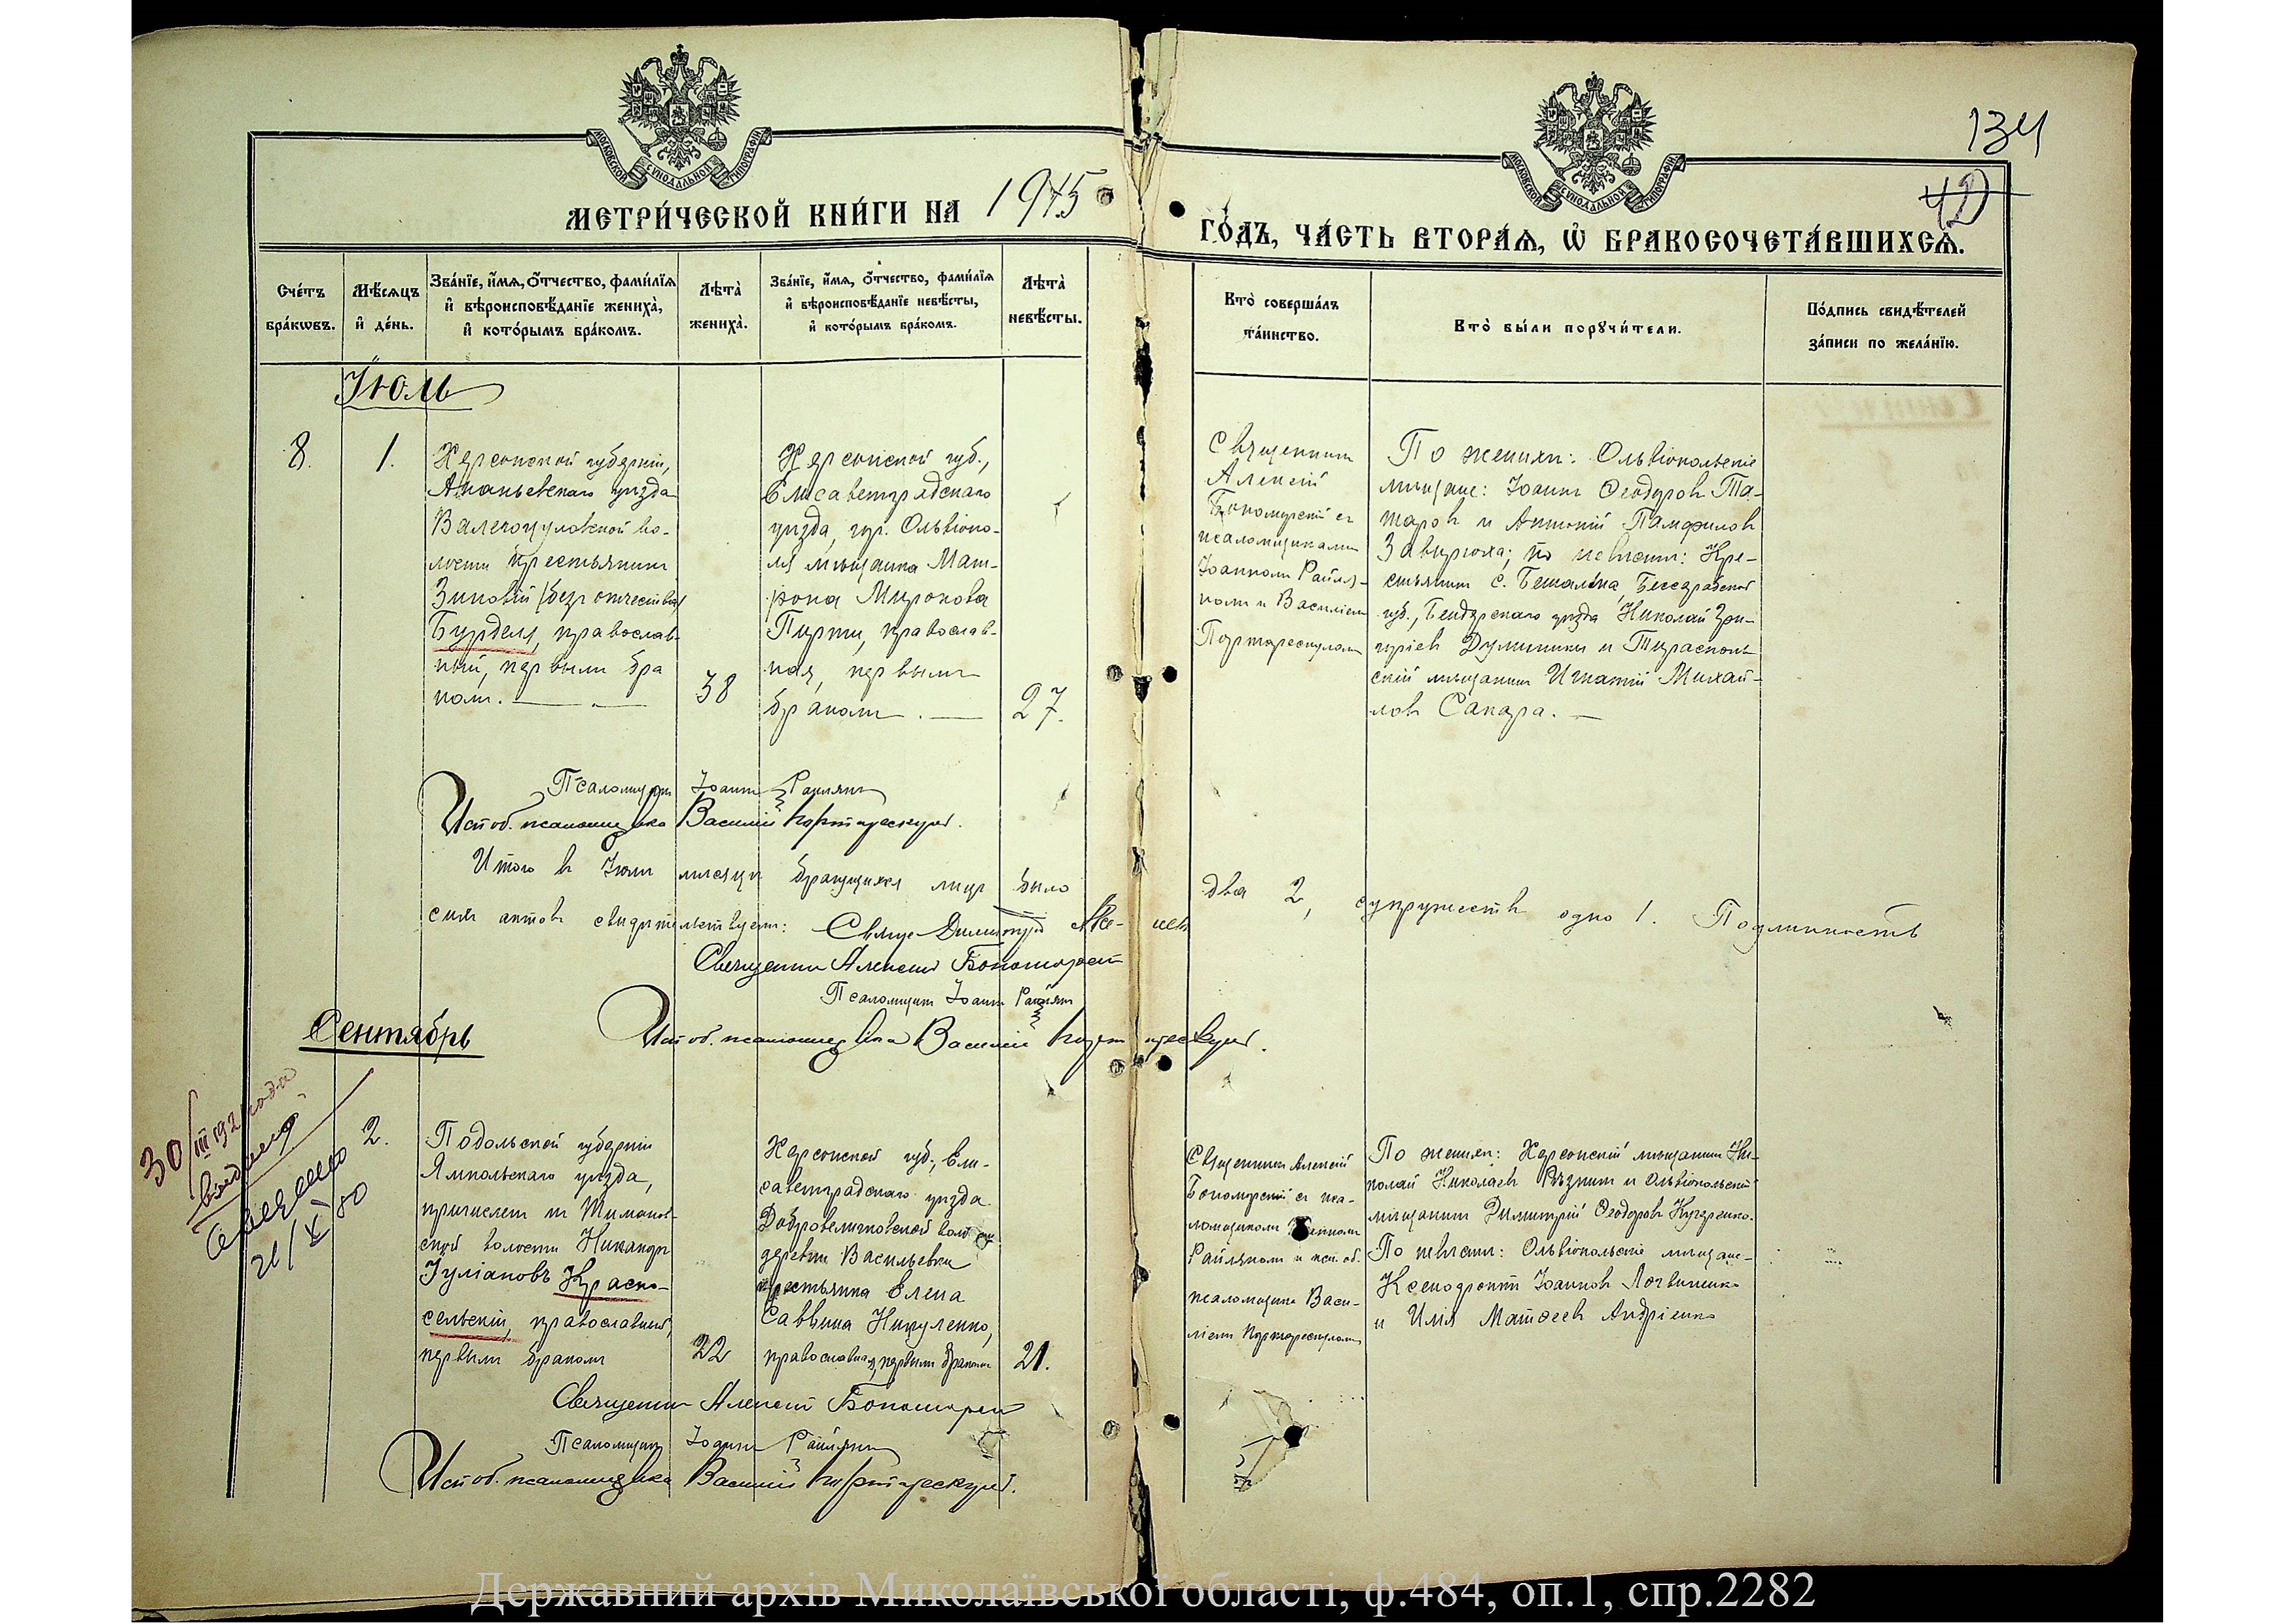 134
42
МОСКОВСКОЙ СѴНОДАЛЬНОЙ ТИПОГРАФІИ
МОСКОВСКОЙ СѴНОДАЛЬНОЙ ТИПОГРАФІИ
МЕТРИ́ЧЕСКОЙ КНИ́ГИ НА 1915
ГО́ДЪ, ЧА́СТЬ ВТОРА́Ѧ, Ѡ҆ БРАКОСОЧЕТА́ВШИХСѦ.
Сче́тъ бра́кѡвъ.
Мѣ́сѧцъ и҆ де́нь.
Зва́нїе, и҆́мѧ, ѻ҆́тчество, фами́лїѧ
и҆ вѣроисповѣ́данїе жениха̀,
и҆ кото́рымъ бра́комъ.
Лѣта̀ жениха̀.
Зва́нїе, и҆́мѧ, ѻ҆́тчество, фами́лїѧ
и҆ вѣроисповѣ́данїе невѣ́сты,
и҆ кото́рымъ бра́комъ.
Лѣта̀ невѣ́сты.
Кто̀ соверша́лъ
та́инство.
Кто̀ бы́ли порꙋчи́тели.
По́дпись свидѣ́телей
за́писи по жела́нїю.
Іюль
8.
1.
Херсонской губерніи,
Ананьевскаго уѣзда
Валегоцуловской во-
лости крестьянинъ
Зиновій (безъ отчества)
Бурдель, православ-
ный, первымъ бра
комъ.
38
Херсонской губ.,
Елисаветградскаго
уѣзда, гор. Ольвіопо-
ля мѣщанка Мат-
рона Миронова
Пирти, православ-
ная, первымъ
бракомъ.
27.
Священникъ
Алексій
Бономорскій съ
псаломщикami
Іоанномъ Райля-
номъ и Василіемъ
Портарескуломъ
По женихѣ: Ольвіопольскіе
мѣщане: Іоаннъ Ѳеодоровъ Та-
таровъ и Антоній Памфиловъ
Завирюха; по невѣстѣ: Кре-
стьянинъ с. Бешалма, Бессарабской
губ., Бендерскаго уѣзда Николай Гри-
горіевъ Думиники и Тирасполь
скій мѣщанинъ Игнатій Михай-
ловъ Сакара.
Псаломщикъ Іоаннъ Райлянъ
Исп. об. псаломщика Василій Портарескулъ.
Итого въ Іюлѣ мѣсяцѣ брачущихся лицъ было два 2, супружествъ одно 1. Подлинность
сихъ актовъ свидѣтельствуемъ:
Священникъ Алексій Бономорскій
Псаломщикъ Іоаннъ Райлянъ
Исп. об. псаломщика Василій Портарескулъ.
Сентябрь
2.
Подольской губерніи
Ямпольскаго уѣзда,
причислен къ Тиманов-
ской волости Никандръ
Іуліановъ Красно-
сельскій, православный,
первымъ бракомъ
22
Херсонской губ., Ели-
саветградскаго уѣзда
Добровеличковской вол.
деревни Васильевки
крестьянка Елена
Саввина Никуленко,
православная, первымъ бракомъ
21.
Священникъ Алексій
Бономорскій съ пса-
ломщикомъ Іоанномъ
Райляномъ и исп. об.
псаломщика Васи-
ліемъ Портарескуломъ
По женихѣ: Херсонскій мѣщанинъ Ни-
колай Николаевъ Рѣзникъ и Ольвіопольскій
мѣщанинъ Димитрій Ѳеодоровъ Кучеренко.
По невѣстѣ: Ольвіопольскіе мѣщане-
Ксенофонтъ Іоанновъ Логвиненко
и Илія Матѳеевъ Андріенко
Священникъ Алексій Бономорскій
Псаломщикъ Іоаннъ Райлянъ
Исп. об. псаломщика Василій Портарескулъ.
Державний архів Миколаївської області, ф.484, оп.1, спр.2282